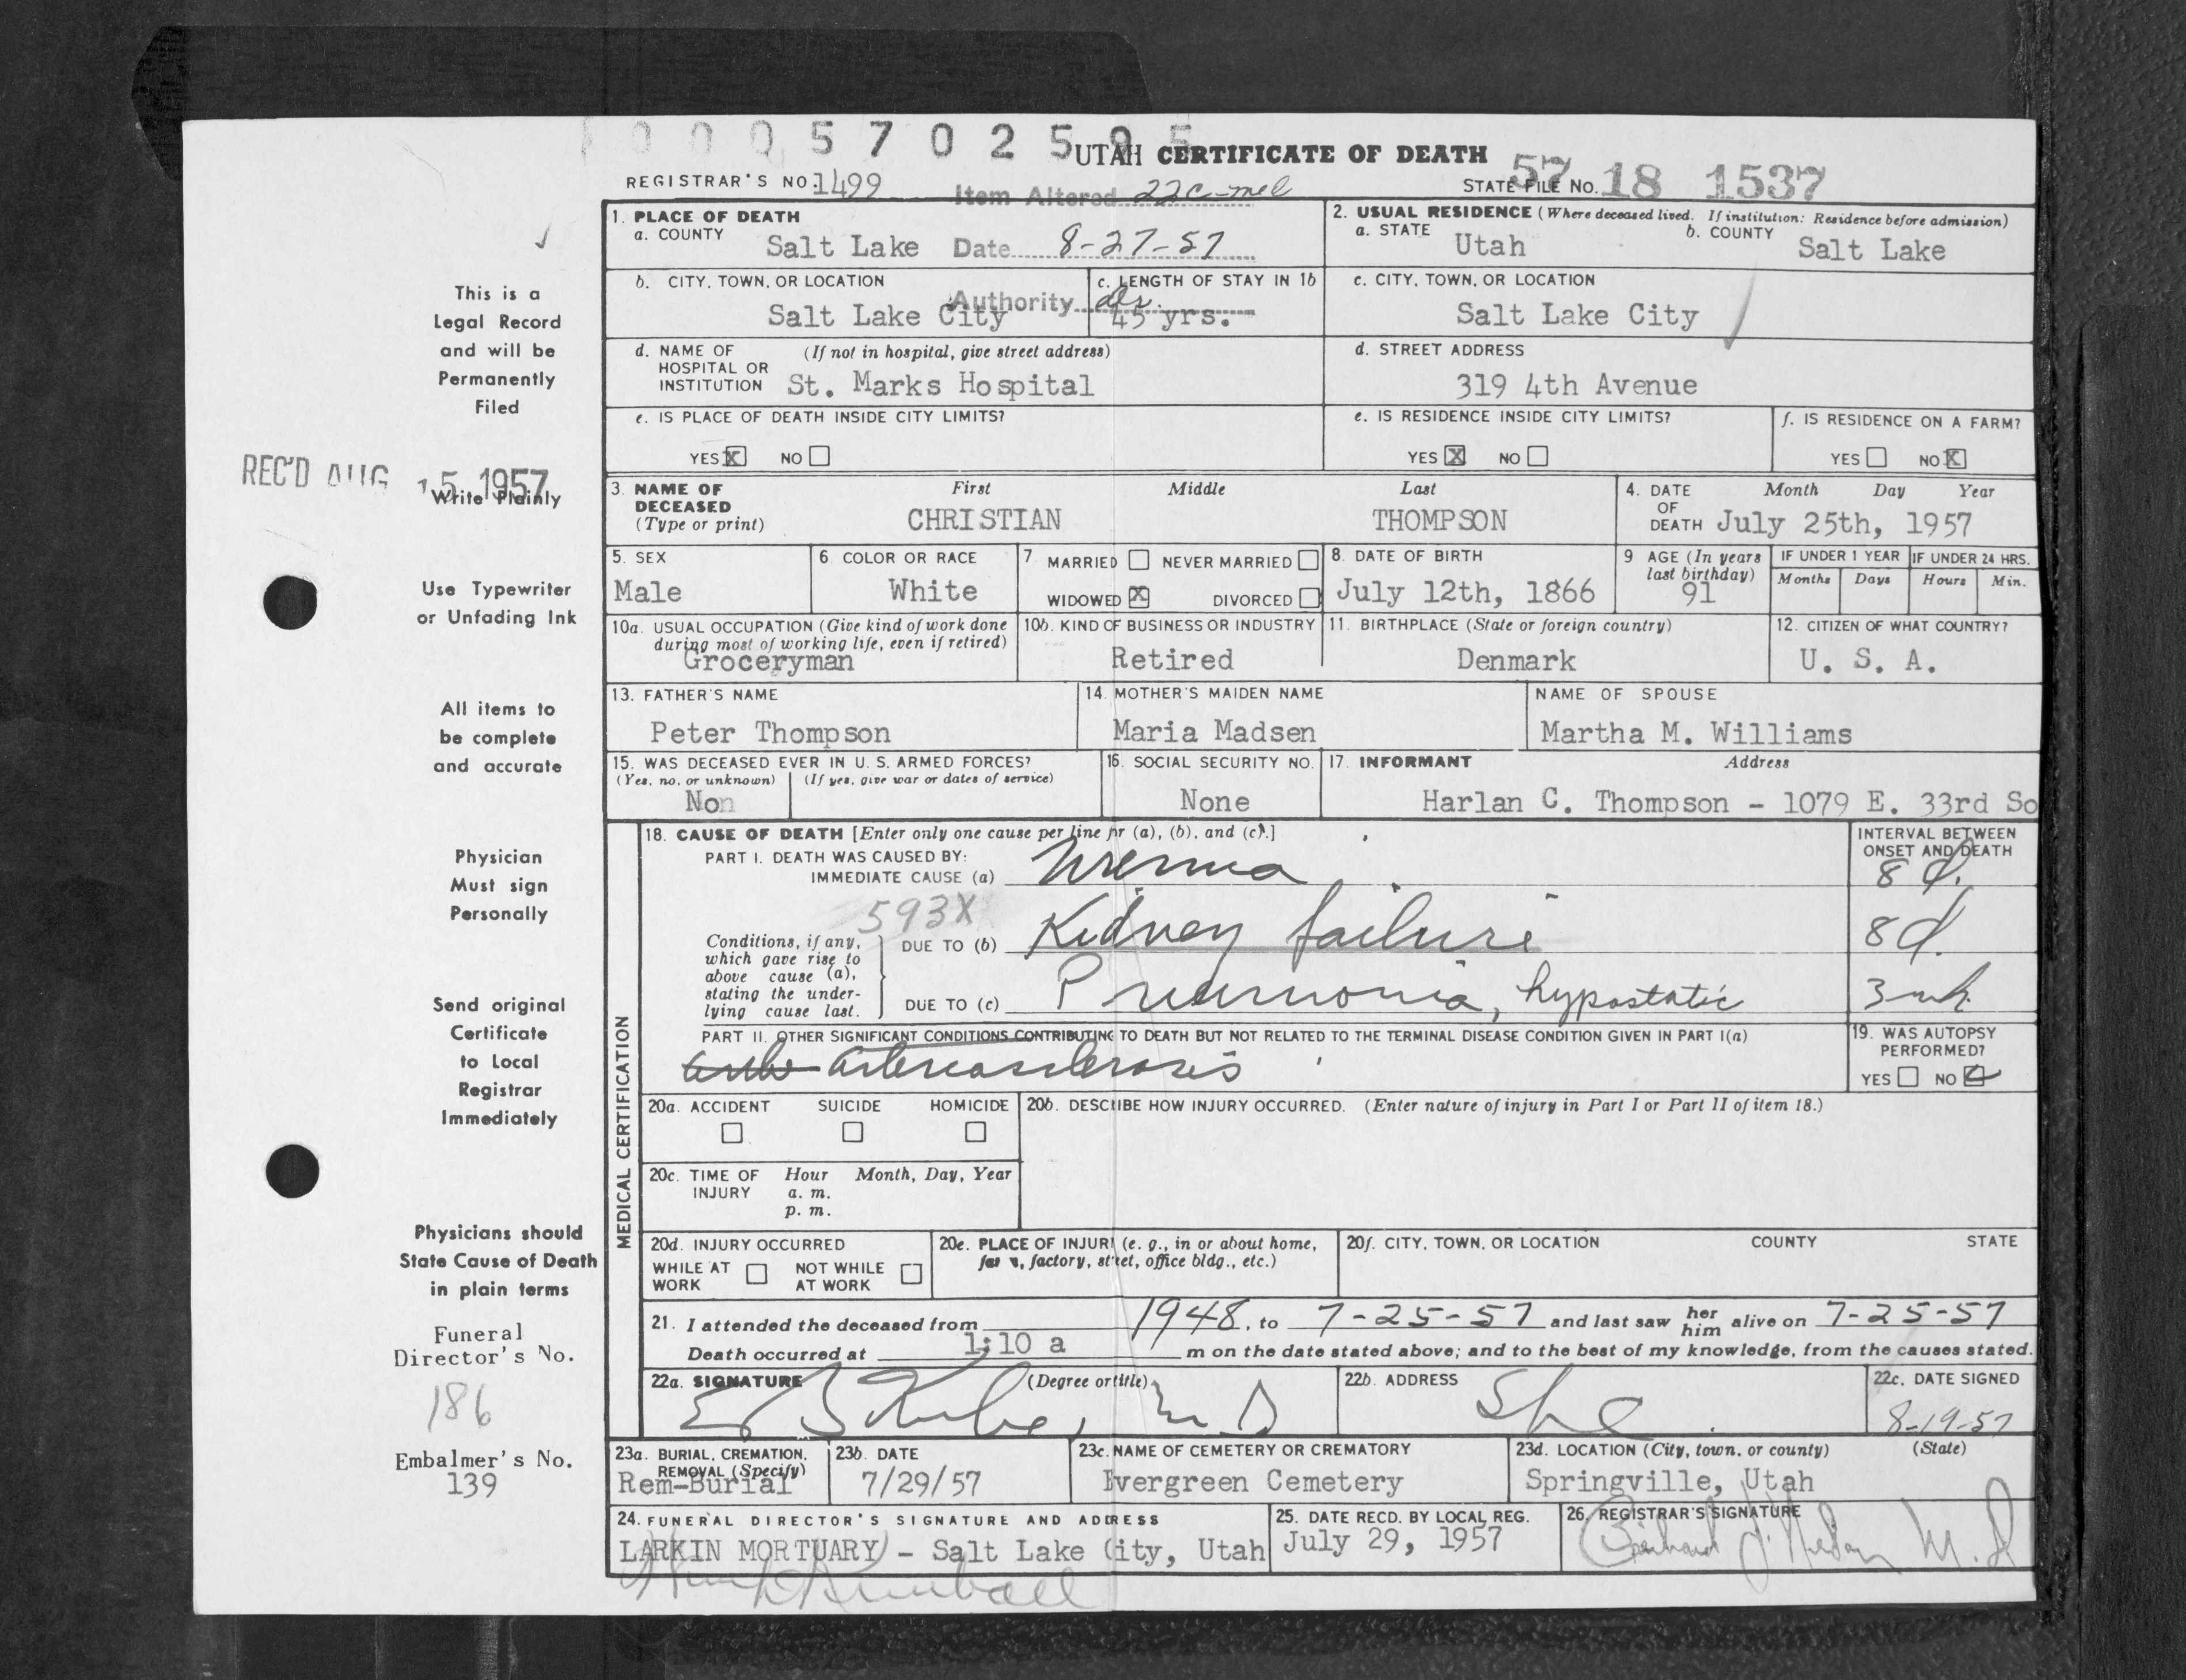 0005702595
UTAH CERTIFICATE OF DEATH
REGISTRAR'S NO. 1499
Item Altered 22c-mel
STATE FILE NO. 57 18 1537
1. PLACE OF DEATH
a. COUNTY Salt Lake
Date 8-27-57
2. USUAL RESIDENCE (Where deceased lived. If institution: Residence before admission)
a. STATE Utah
b. COUNTY Salt Lake
b. CITY, TOWN, OR LOCATION
Salt Lake City
Authority
c. LENGTH OF STAY IN 1b
45 yrs.
c. CITY, TOWN, OR LOCATION
Salt Lake City
d. NAME OF HOSPITAL OR INSTITUTION (If not in hospital, give street address)
St. Marks Hospital
d. STREET ADDRESS
319 4th Avenue
e. IS PLACE OF DEATH INSIDE CITY LIMITS?
YES X NO
e. IS RESIDENCE INSIDE CITY LIMITS?
YES X NO
f. IS RESIDENCE ON A FARM?
YES NO X
3. NAME OF DECEASED (Type or print)
First Middle Last
CHRISTIAN THOMPSON
4. DATE OF DEATH
Month Day Year
July 25th, 1957
5. SEX
Male
6. COLOR OR RACE
White
7 MARRIED NEVER MARRIED
WIDOWED X DIVORCED
8. DATE OF BIRTH
July 12th, 1866
9 AGE (In years last birthday)
91
IF UNDER 1 YEAR
Months Days
IF UNDER 24 HRS.
Hours Min.
10a. USUAL OCCUPATION (Give kind of work done during most of working life, even if retired)
Groceryman
10b. KIND OF BUSINESS OR INDUSTRY
Retired
11. BIRTHPLACE (State or foreign country)
Denmark
12. CITIZEN OF WHAT COUNTRY?
U. S. A.
13. FATHER'S NAME
Peter Thompson
14. MOTHER'S MAIDEN NAME
Maria Madsen
NAME OF SPOUSE
Martha M. Williams
15. WAS DECEASED EVER IN U. S. ARMED FORCES?
(Yes, no, or unknown) (If yes, give war or dates of service)
Non
16. SOCIAL SECURITY NO.
None
17. INFORMANT Address
Harlan C. Thompson - 1079 E. 33rd So
MEDICAL CERTIFICATION
18. CAUSE OF DEATH [Enter only one cause per line for (a), (b), and (c).]
INTERVAL BETWEEN ONSET AND DEATH
PART I. DEATH WAS CAUSED BY:
IMMEDIATE CAUSE (a) Uremia 8 d.
593X
Conditions, if any, which gave rise to above cause (a), stating the underlying cause last.
DUE TO (b) Kidney failure 8 d.
DUE TO (c) Pneumonia, hypostatic 3 wk
PART II. OTHER SIGNIFICANT CONDITIONS CONTRIBUTING TO DEATH BUT NOT RELATED TO THE TERMINAL DISEASE CONDITION GIVEN IN PART I(a)
arteriosclerosis
19. WAS AUTOPSY PERFORMED?
YES NO
20a. ACCIDENT SUICIDE HOMICIDE
20b. DESCRIBE HOW INJURY OCCURRED. (Enter nature of injury in Part I or Part II of item 18.)
20c. TIME OF INJURY Hour Month, Day, Year
a. m.
p. m.
20d. INJURY OCCURRED
WHILE AT WORK NOT WHILE AT WORK
20e. PLACE OF INJURY (e. g., in or about home, farm, factory, street, office bldg., etc.)
20f. CITY, TOWN, OR LOCATION COUNTY STATE
21. I attended the deceased from 1948, to 7-25-57 and last saw her him alive on 7-25-57
Death occurred at 1:10 a m on the date stated above; and to the best of my knowledge, from the causes stated.
22a. SIGNATURE (Degree or title)
M D
22b. ADDRESS
SLC
22c. DATE SIGNED
8-19-57
23a. BURIAL, CREMATION, REMOVAL (Specify)
Rem-Burial
23b. DATE
7/29/57
23c. NAME OF CEMETERY OR CREMATORY
Evergreen Cemetery
23d. LOCATION (City, town, or county) (State)
Springville, Utah
24. FUNERAL DIRECTOR'S SIGNATURE AND ADDRESS
LARKIN MORTUARY - Salt Lake City, Utah
25. DATE RECD. BY LOCAL REG.
July 29, 1957
26. REGISTRAR'S SIGNATURE
M. D
This is a
Legal Record
and will be
Permanently
Filed
REC'D AUG 15 1957
Write Plainly
Use Typewriter
or Unfading Ink
All items to
be complete
and accurate
Physician
Must sign
Personally
Send original
Certificate
to Local
Registrar
Immediately
Physicians should
State Cause of Death
in plain terms
Funeral
Director's No.
186
Embalmer's No.
139